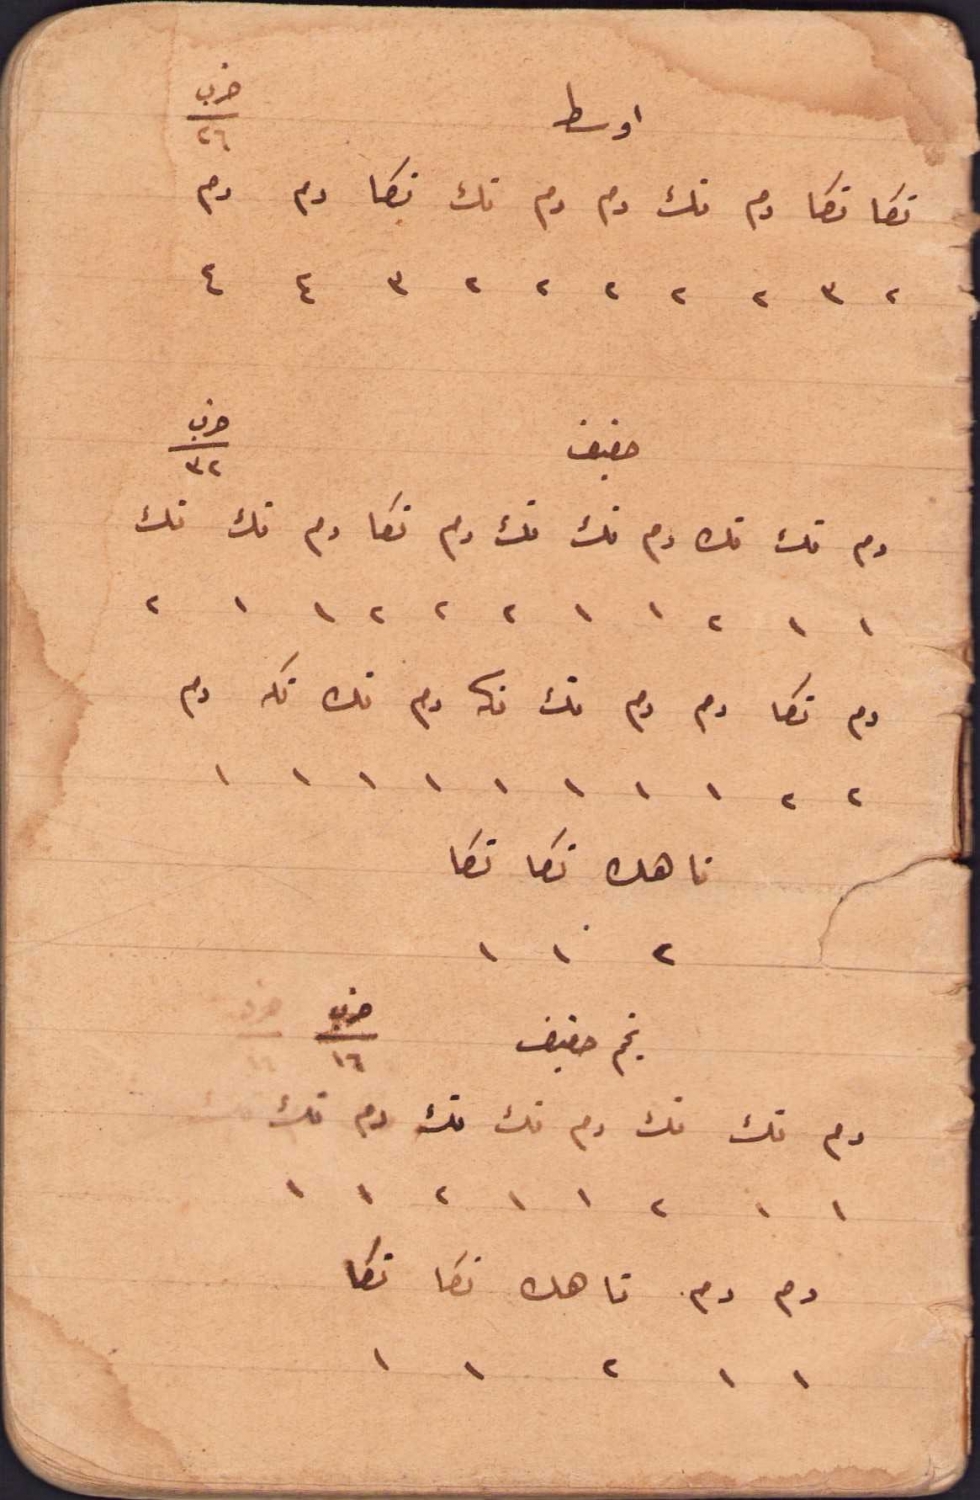 اوسط ضرب ٢٦
تكا تكا دم تك دم دم تك تكا دم دم
٢ ٣ ٢ ٢ ٢ ٢ ٢ ٣ ٤ ٤
خفيف ضرب ٣٢
دم تك تك دم تك تك دم تكا دم تك تك
١ ١ ٢ ١ ١ ٢ ٢ ٢ ١ ١ ٢
دم تكا دم دم تك تكه دم تك تكه دم
٢ ٢ ١ ١ ١ ١ ١ ١ ١ ١
تا هك تكا تكا
٢ ١ ١
نيم خفيف ضرب ١٦
دم تك تك دم تك تك دم تك
١ ١ ٢ ١ ١ ٢ ١ ١
دم دم تا هك تكا تكا
١ ١ ٢ ١ ١